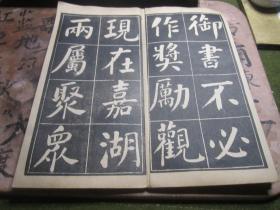 御書不必
作獎勵觀
現在嘉湖
兩屬聚眾